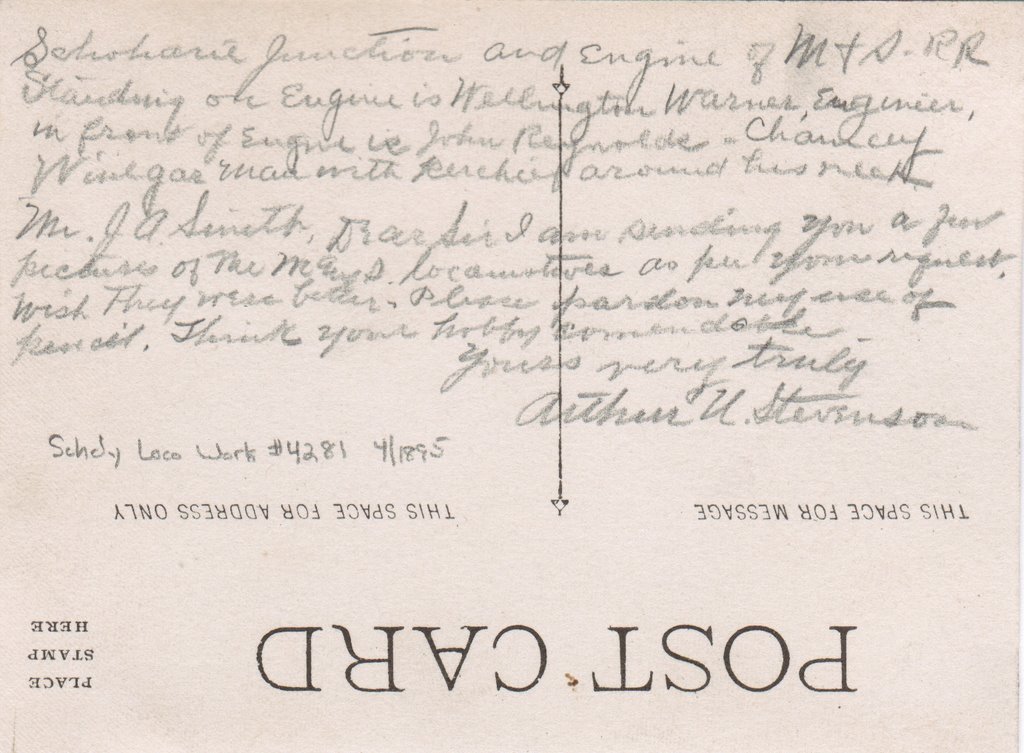 Schoharie Junction and Engine of M & S. RR
Standing on Engine is Wellington Warner, Enginier,
in front of Engine is John Reynolds - Chancey
Winegar man with Kerchief around his neck.
Mr. J A Smith, Dear Sir I am sending you a few
pictures of the M & S. locomotives as per your request.
Wish they were better. Please pardon my use of
pencil. Think your hobby comendable
Yours very truly
Arthur U. Stevenson
Schdy Loco Work #4281 4/1895
THIS SPACE FOR ADDRESS ONLY
THIS SPACE FOR MESSAGE
POST CARD
PLACE
STAMP
HERE